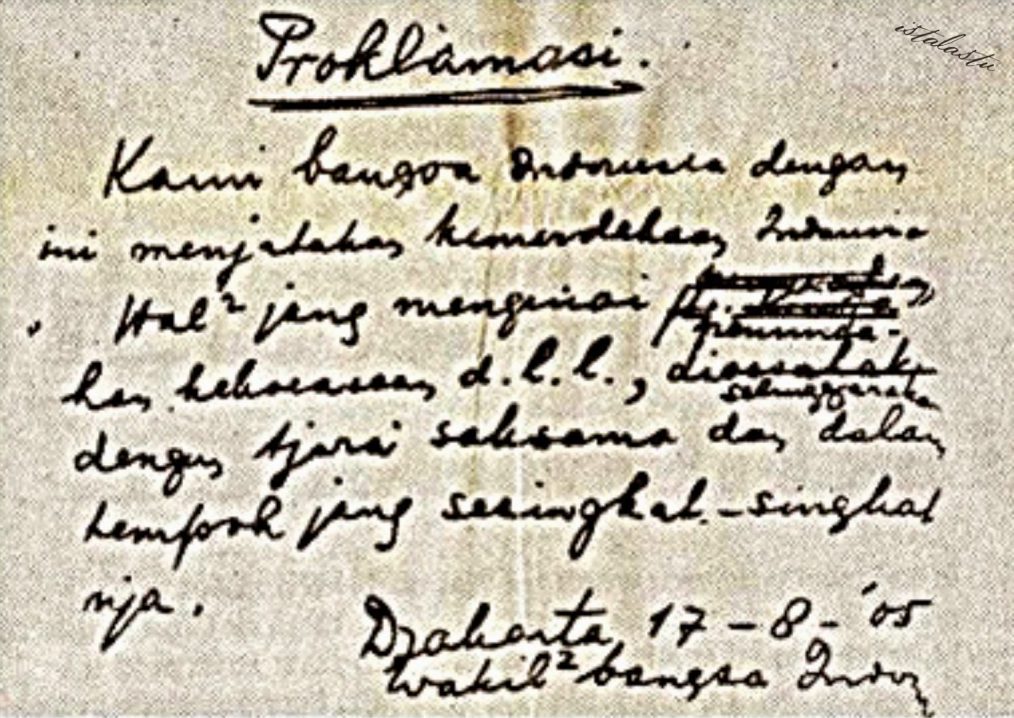 Proklamasi.
istalastu
Kami bangsa Indonesia dengan
ini menjatakan kemerdekaan Indonesia
. Hal² jang mengenai
pemindah-
han kekoeasaan d.l.l., dioesahak
selenggarakan
dengan tjara saksama dan dalam
tempoh jang sesingkat-singkat
nja.
Djakarta, 17 - 8 - '05
Wakil² bangsa Indon